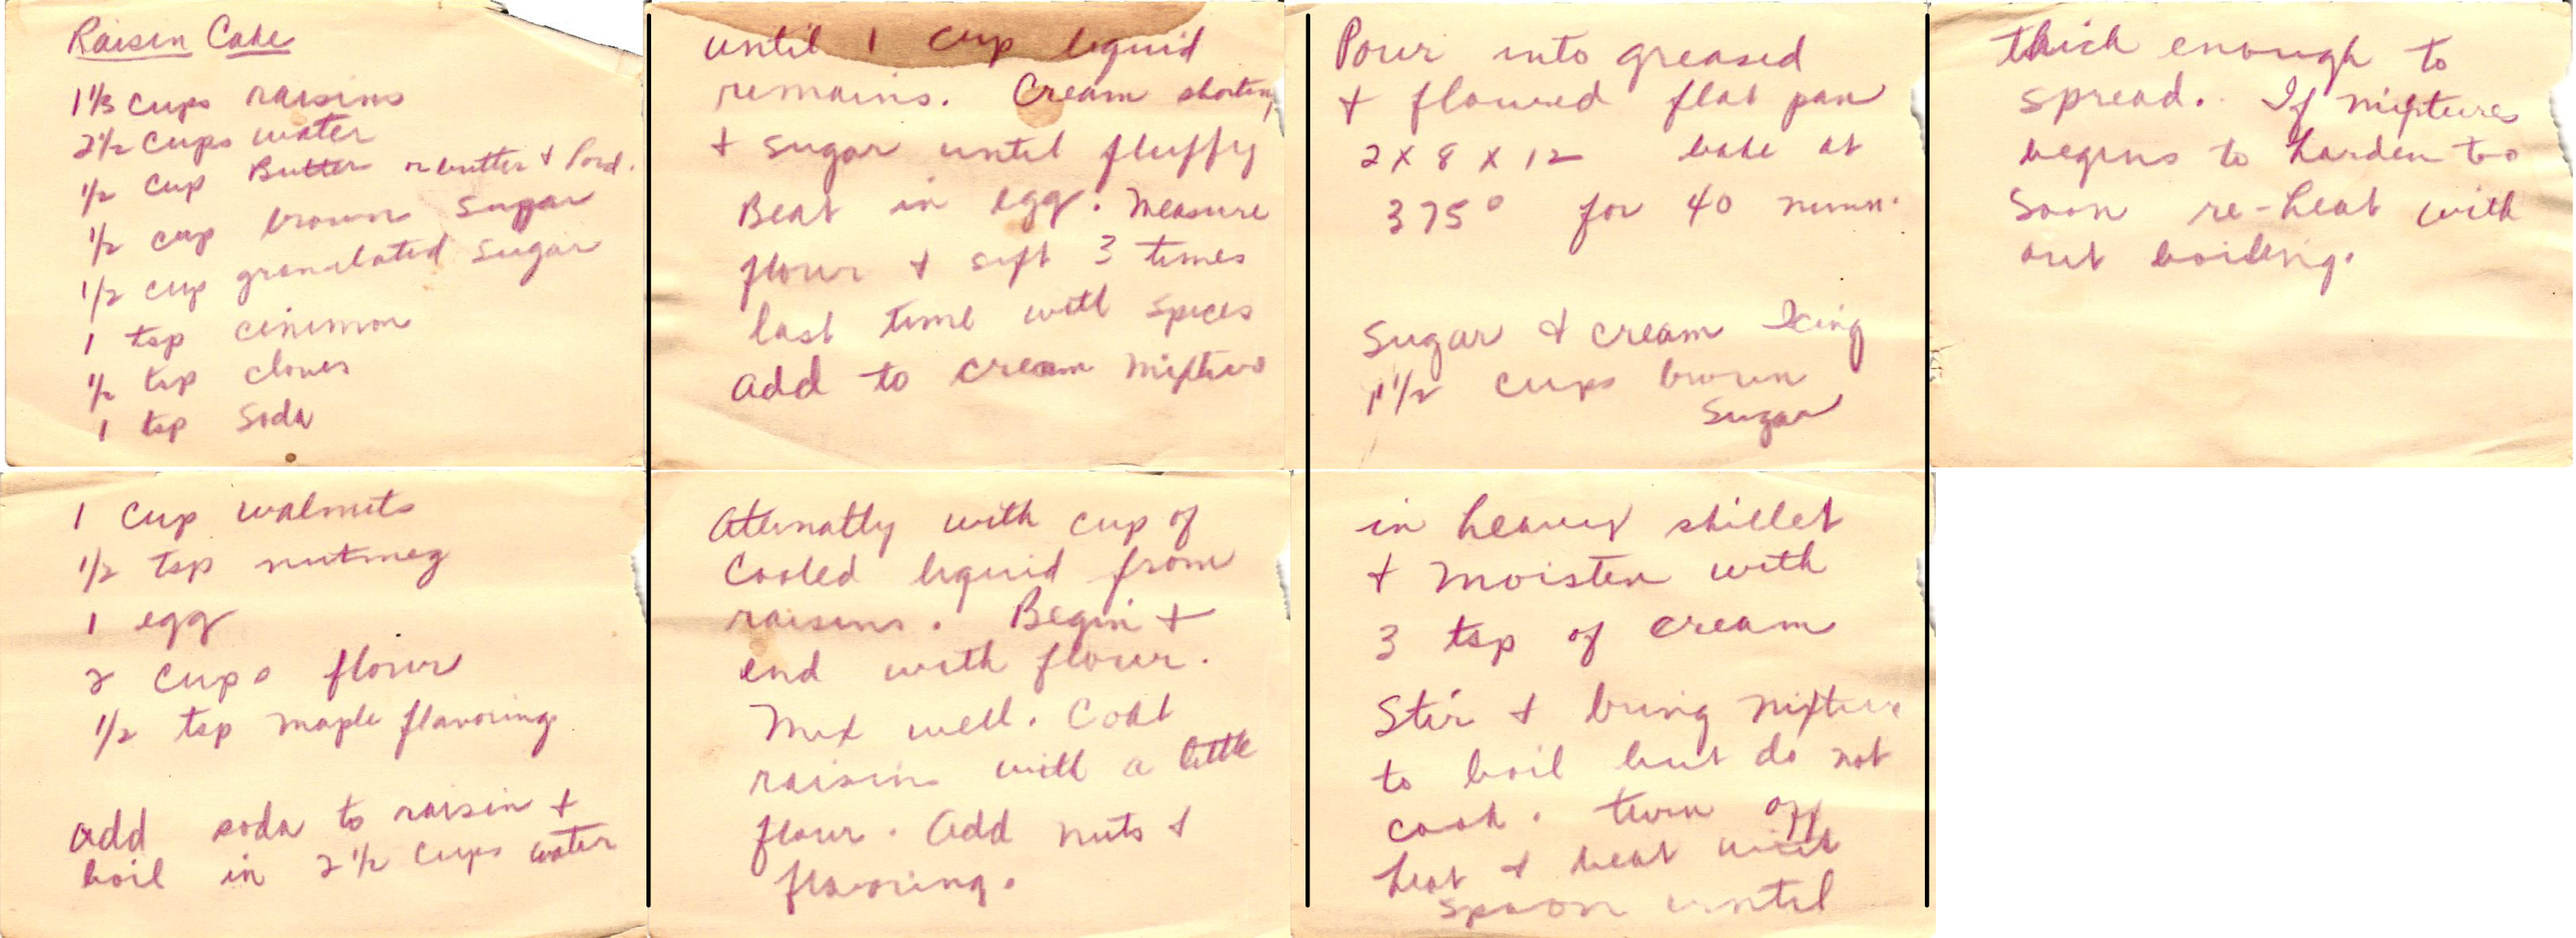 Raisin Cake
1 1/3 cups raisins
2 1/2 cups water
1/2 cup Butter or butter + Lard.
1/2 cup brown sugar
1/2 cup granulated sugar
1 tsp cinimon
1/2 tsp cloves
1 tsp Soda
1 cup walnuts
1/2 tsp nutmeg
1 egg
2 cups flour
1/2 tsp maple flavoring
add soda to raisin +
boil in 2 1/2 cups water
until 1 cup liquid
remains. Cream shortning
+ sugar until fluffy
Beat in egg. Measure
flour + sift 3 times
last time with spices
add to cream mixture
Aternatly with cup of
Cooled liquid from
raisins. Begin +
end with flour.
Mix well. Coat
raisins with a little
flour. Add nuts +
flavoring.
Pour into greased
+ floured flat pan
2 X 8 X 12 bake at
375° for 40 minn.
Sugar & cream Icing
1 1/2 cups brown
Sugar
in heavy skillet
+ moisten with
3 tsp of cream
Stir + bring mixture
to boil but do not
cook. turn off
heat + beat with
spoon until
thick enough to
spread. If mixtures
begins to harden too
soon re-heat with
out boiling.